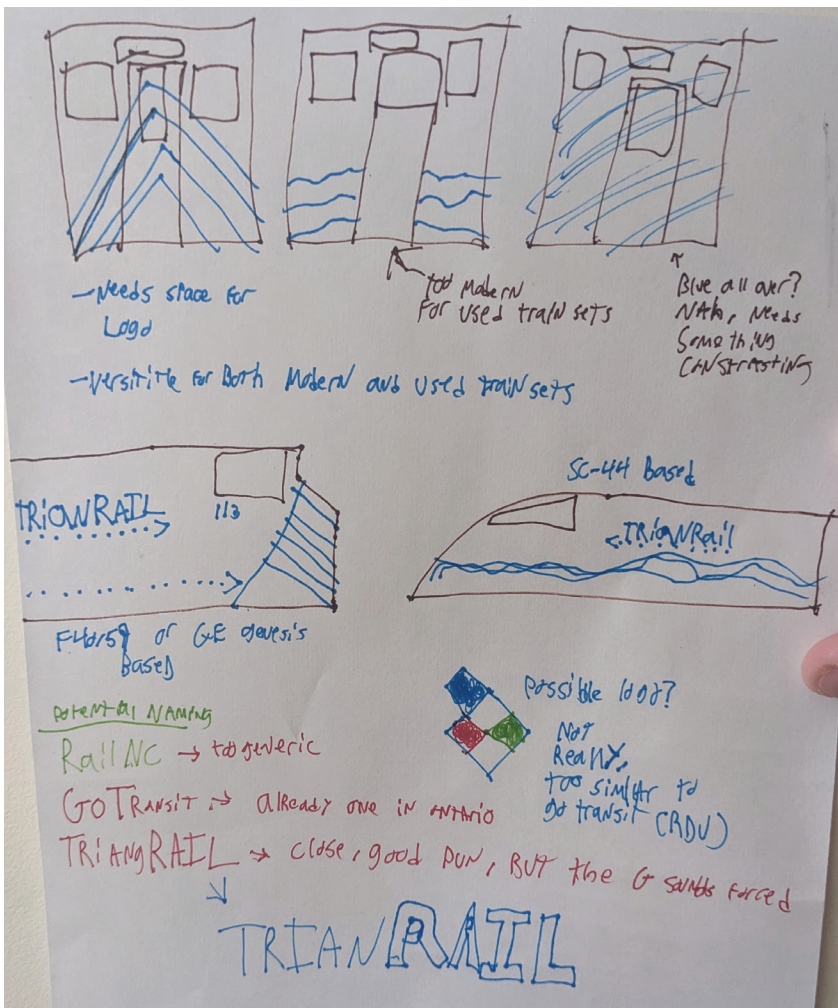 -Needs space for
Logo
-Versitile for Both Modern and used train sets
too Modern
For used train sets
Blue all over?
NAh, Needs
Something
CONStrASTING
TRIANRAIL
113
F40r59 or GE genesis
Based
SC-44 Based
TRIANRail
Potential NAMING
Rail NC → too generic
GO TRANSIT → already one in ONTARIO
TRiANgRAIL → close, good PUN, BUT the G sounds forced
TRIANRAIL
Possible logo?
Not
Really,
too similar to
go transit (RDU)